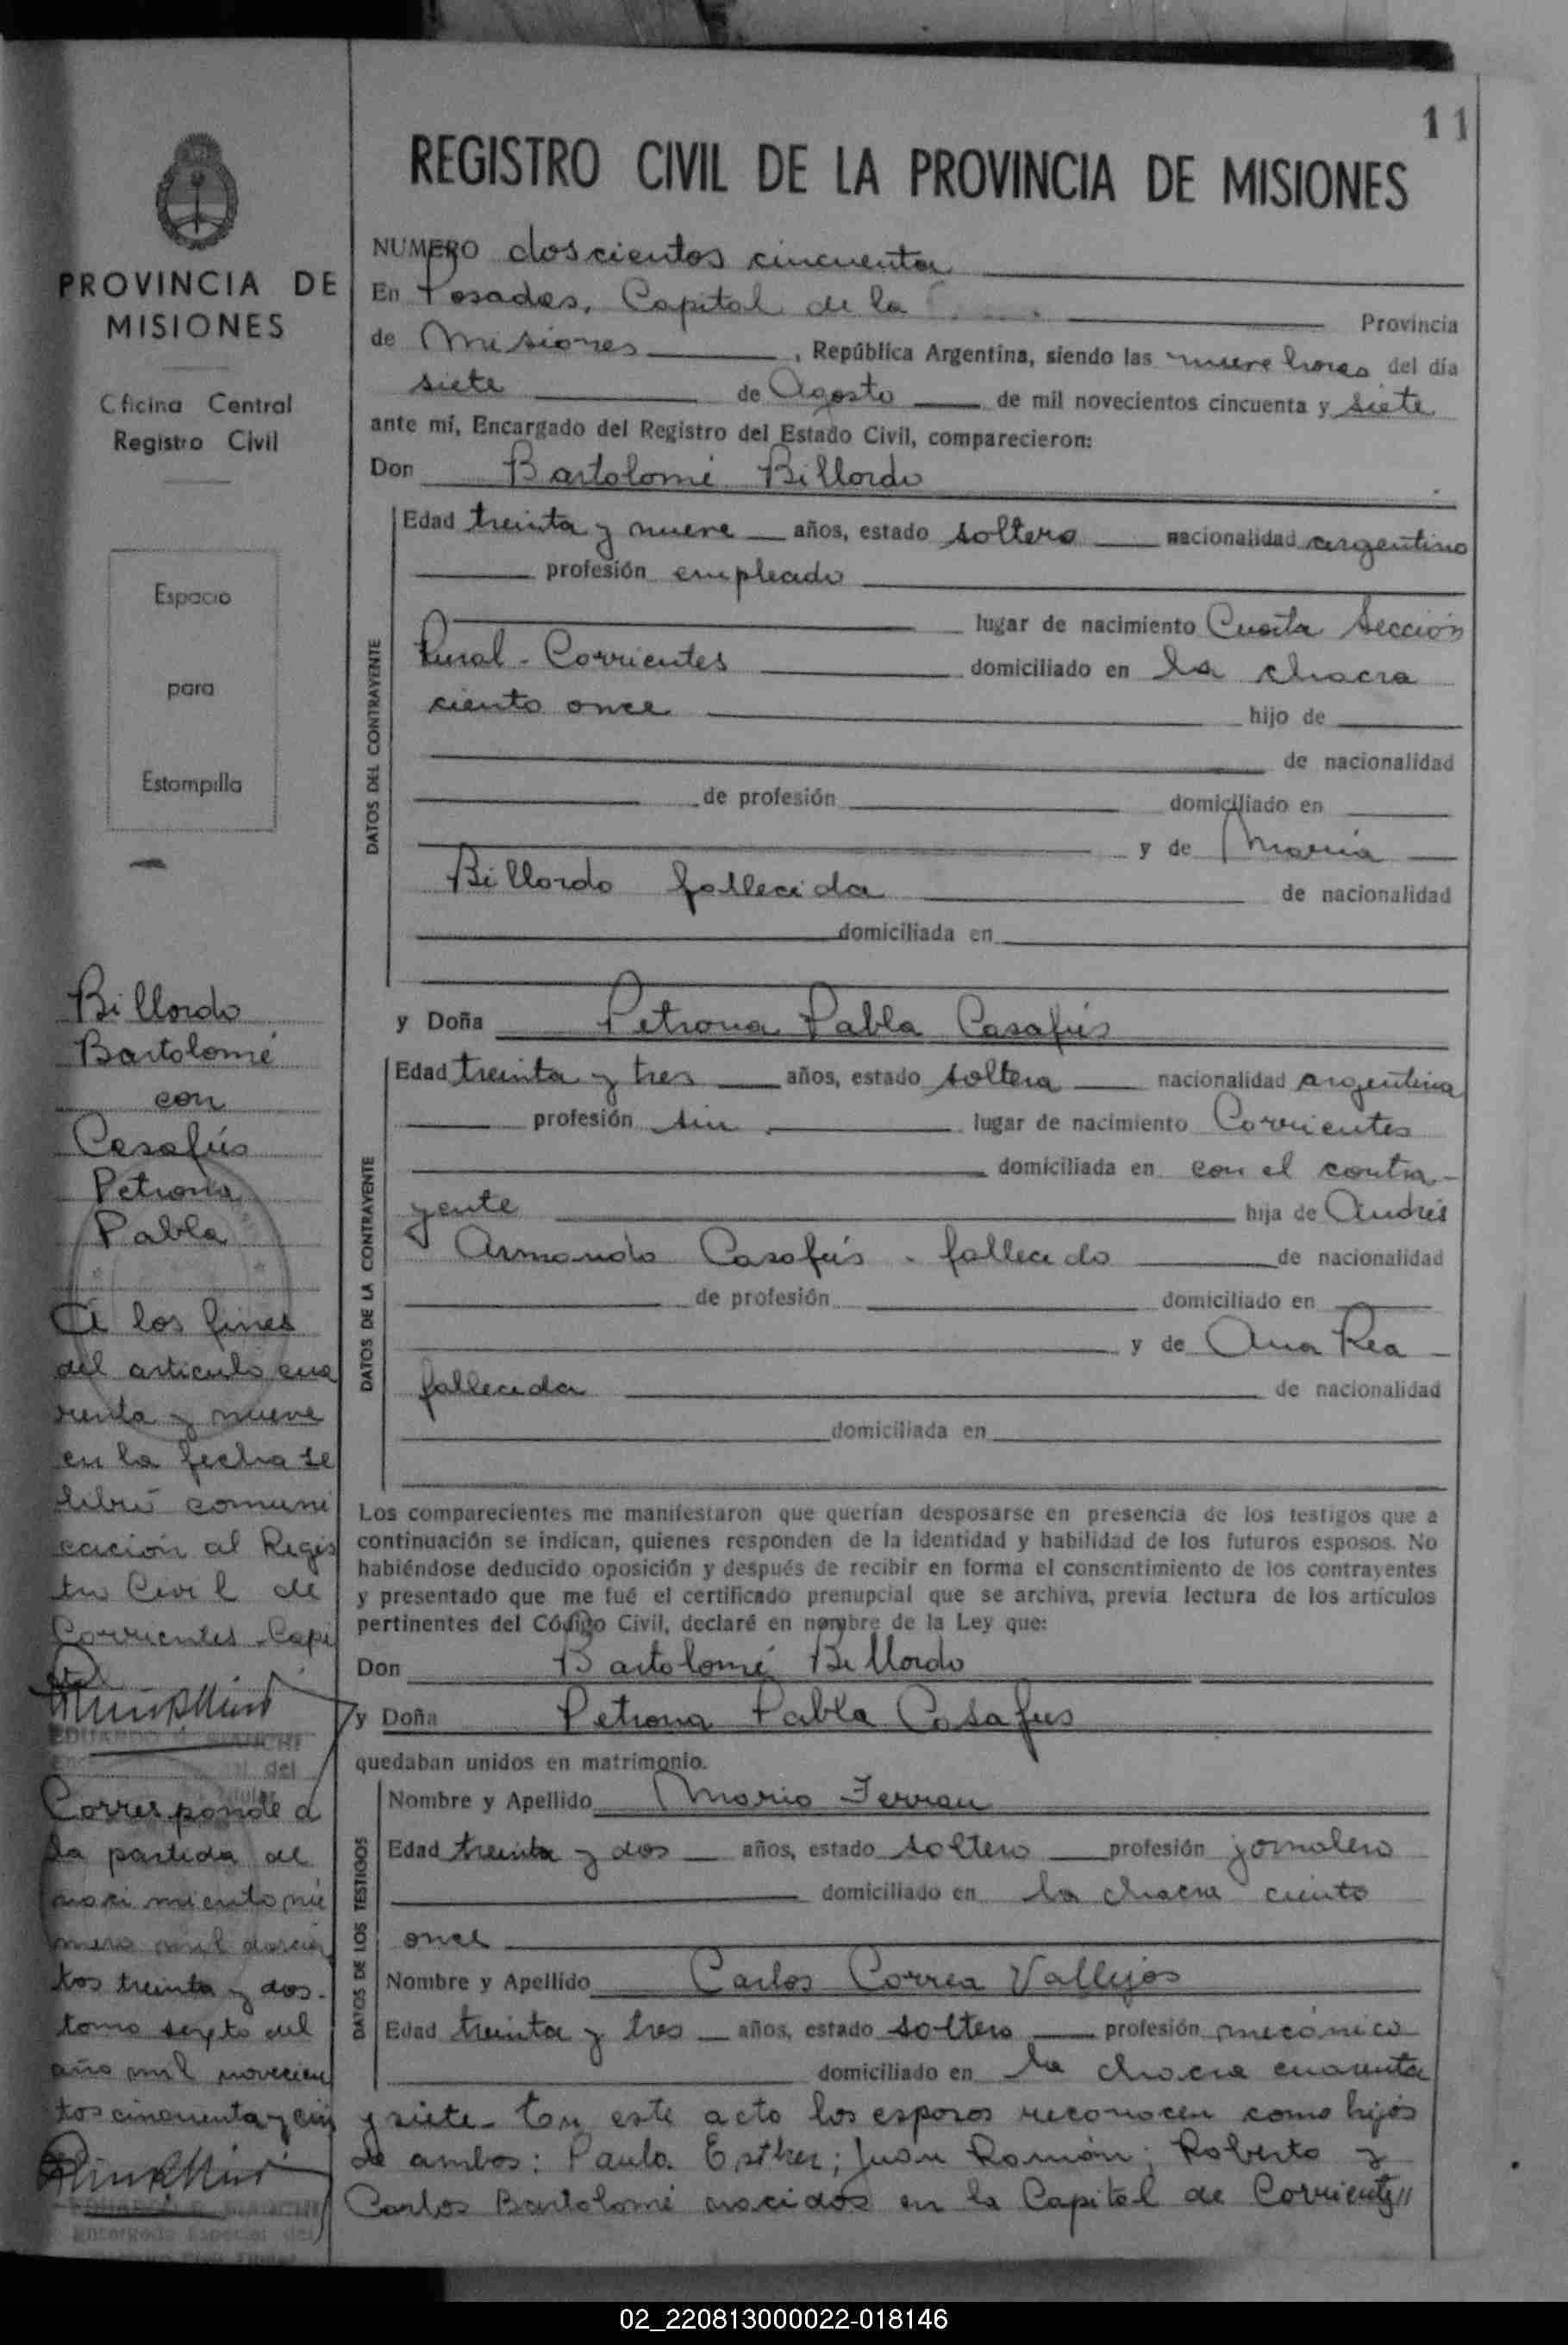 11
REGISTRO CIVIL DE LA PROVINCIA DE MISIONES
PROVINCIA DE
MISIONES
Oficina Central
Registro Civil
Espacio
para
Estampilla
NUMERO doscientos cincuenta
En Posadas, Capital de la Provincia
de Misiones, República Argentina, siendo las nueve horas del día
siete de Agosto de mil novecientos cincuenta y siete
ante mí, Encargado del Registro del Estado Civil, comparecieron:
Don Bartolomé Billordo
DATOS DEL CONTRAYENTE
Edad treinta y nueve años, estado soltero nacionalidad argentino
profesión empleado
lugar de nacimiento Cuarta Sección
Rural - Corrientes domiciliado en la chacra
ciento once hijo de
de nacionalidad
de profesión domiciliado en
y de María
Billordo fallecida de nacionalidad
domiciliada en
y Doña Petrona Pabla Casafús
DATOS DE LA CONTRAYENTE
Edad treinta y tres años, estado soltera nacionalidad argentina
profesión sin lugar de nacimiento Corrientes
domiciliada en con el contra-
yente hija de Andrés
Armando Casafús - fallecido de nacionalidad
de profesión domiciliado en
y de Ana Rea
fallecida de nacionalidad
domiciliada en
Los comparecientes me manifestaron que querían desposarse en presencia de los testigos que a
continuación se indican, quienes responden de la identidad y habilidad de los futuros esposos. No
habiéndose deducido oposición y después de recibir en forma el consentimiento de los contrayentes
y presentado que me fué el certificado prenupcial que se archiva, previa lectura de los artículos
pertinentes del Código Civil, declaré en nombre de la Ley que:
Don Bartolomé Billordo
y Doña Petrona Pabla Casafus
quedaban unidos en matrimonio.
DATOS DE LOS TESTIGOS
Nombre y Apellido Mario Ferrau
Edad treinta y dos años, estado soltero profesión jornalero
domiciliado en la chacra ciento
once
Nombre y Apellido Carlos Correa Vallejos
Edad treinta y tres años, estado soltero profesión mecánico
domiciliado en la chacra cuarenta
y siete - En este acto los esposos reconocen como hijos
de ambos: Paula Esther; Juan Ramón; Roberto y
Carlos Bartolomé nacidos en la Capital de Corrientes//
Billordo
Bartolomé
con
Casafús
Petrona
Pabla
A los fines
del artículo cua
renta y nueve
en la fecha se
libró comuni
cación al Regis
tro Civil de
Corrientes - Capi
tal
EDUARDO BIANCHI
Corresponde a
la partida de
nacimiento nú
mero mil doscien
tos treinta y dos.
tomo sexto del
año mil novecien
tos cincuenta y cin
Encargado Especial del
02_220813000022-018146